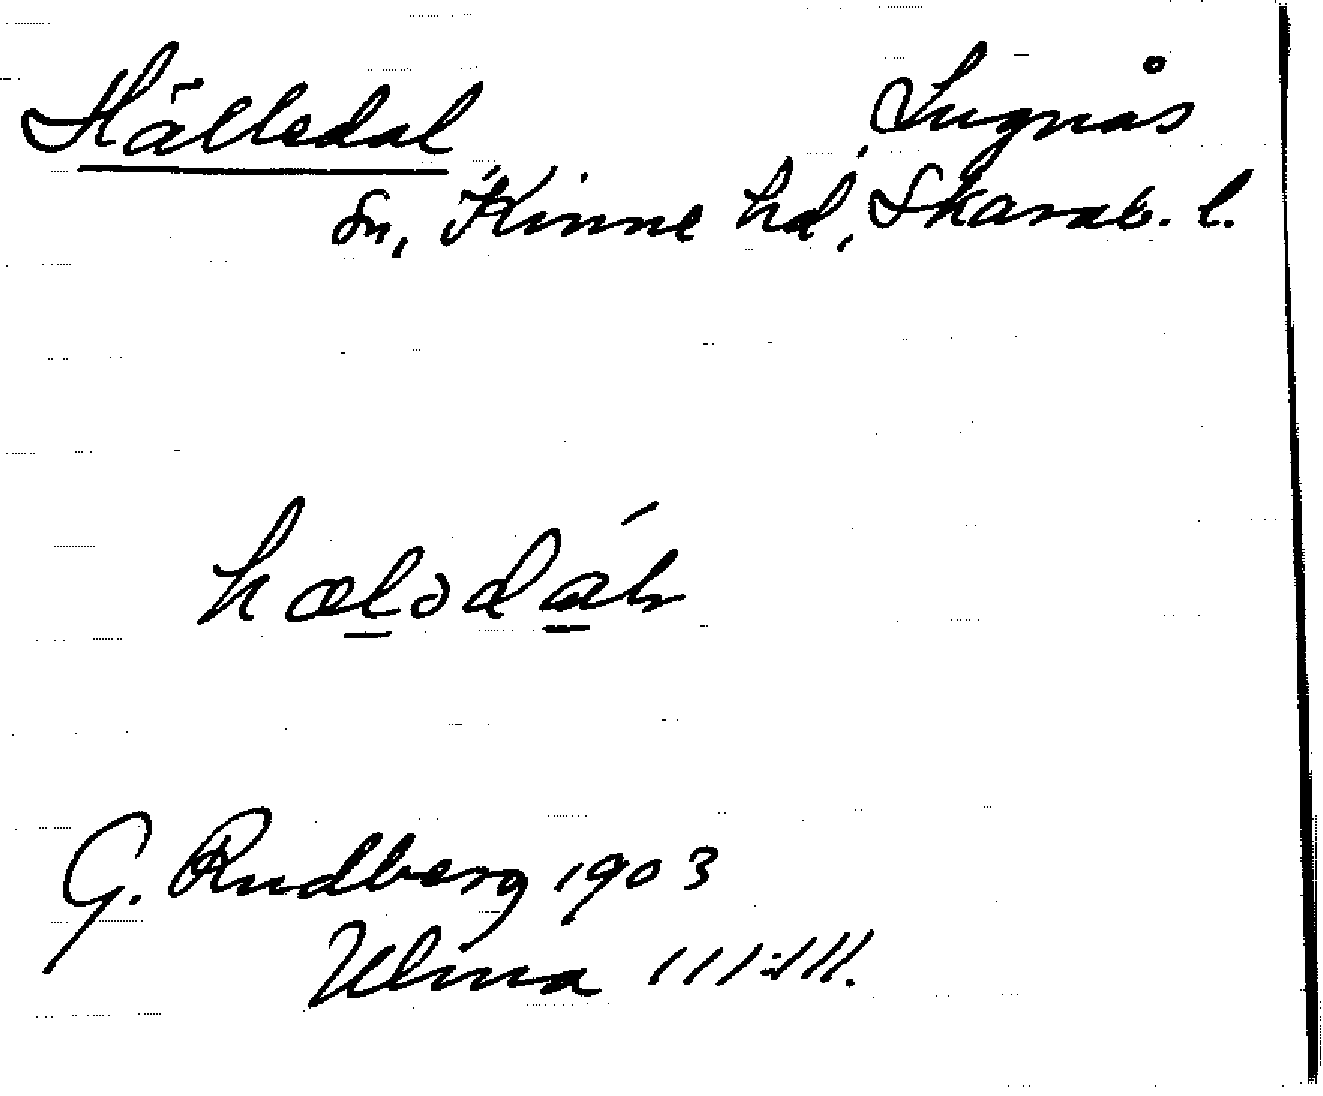 Hälledal
Lugnås
sn, Kinne hd, Skarab. l.
G. Rudberg 1903
Ulma 111:11.